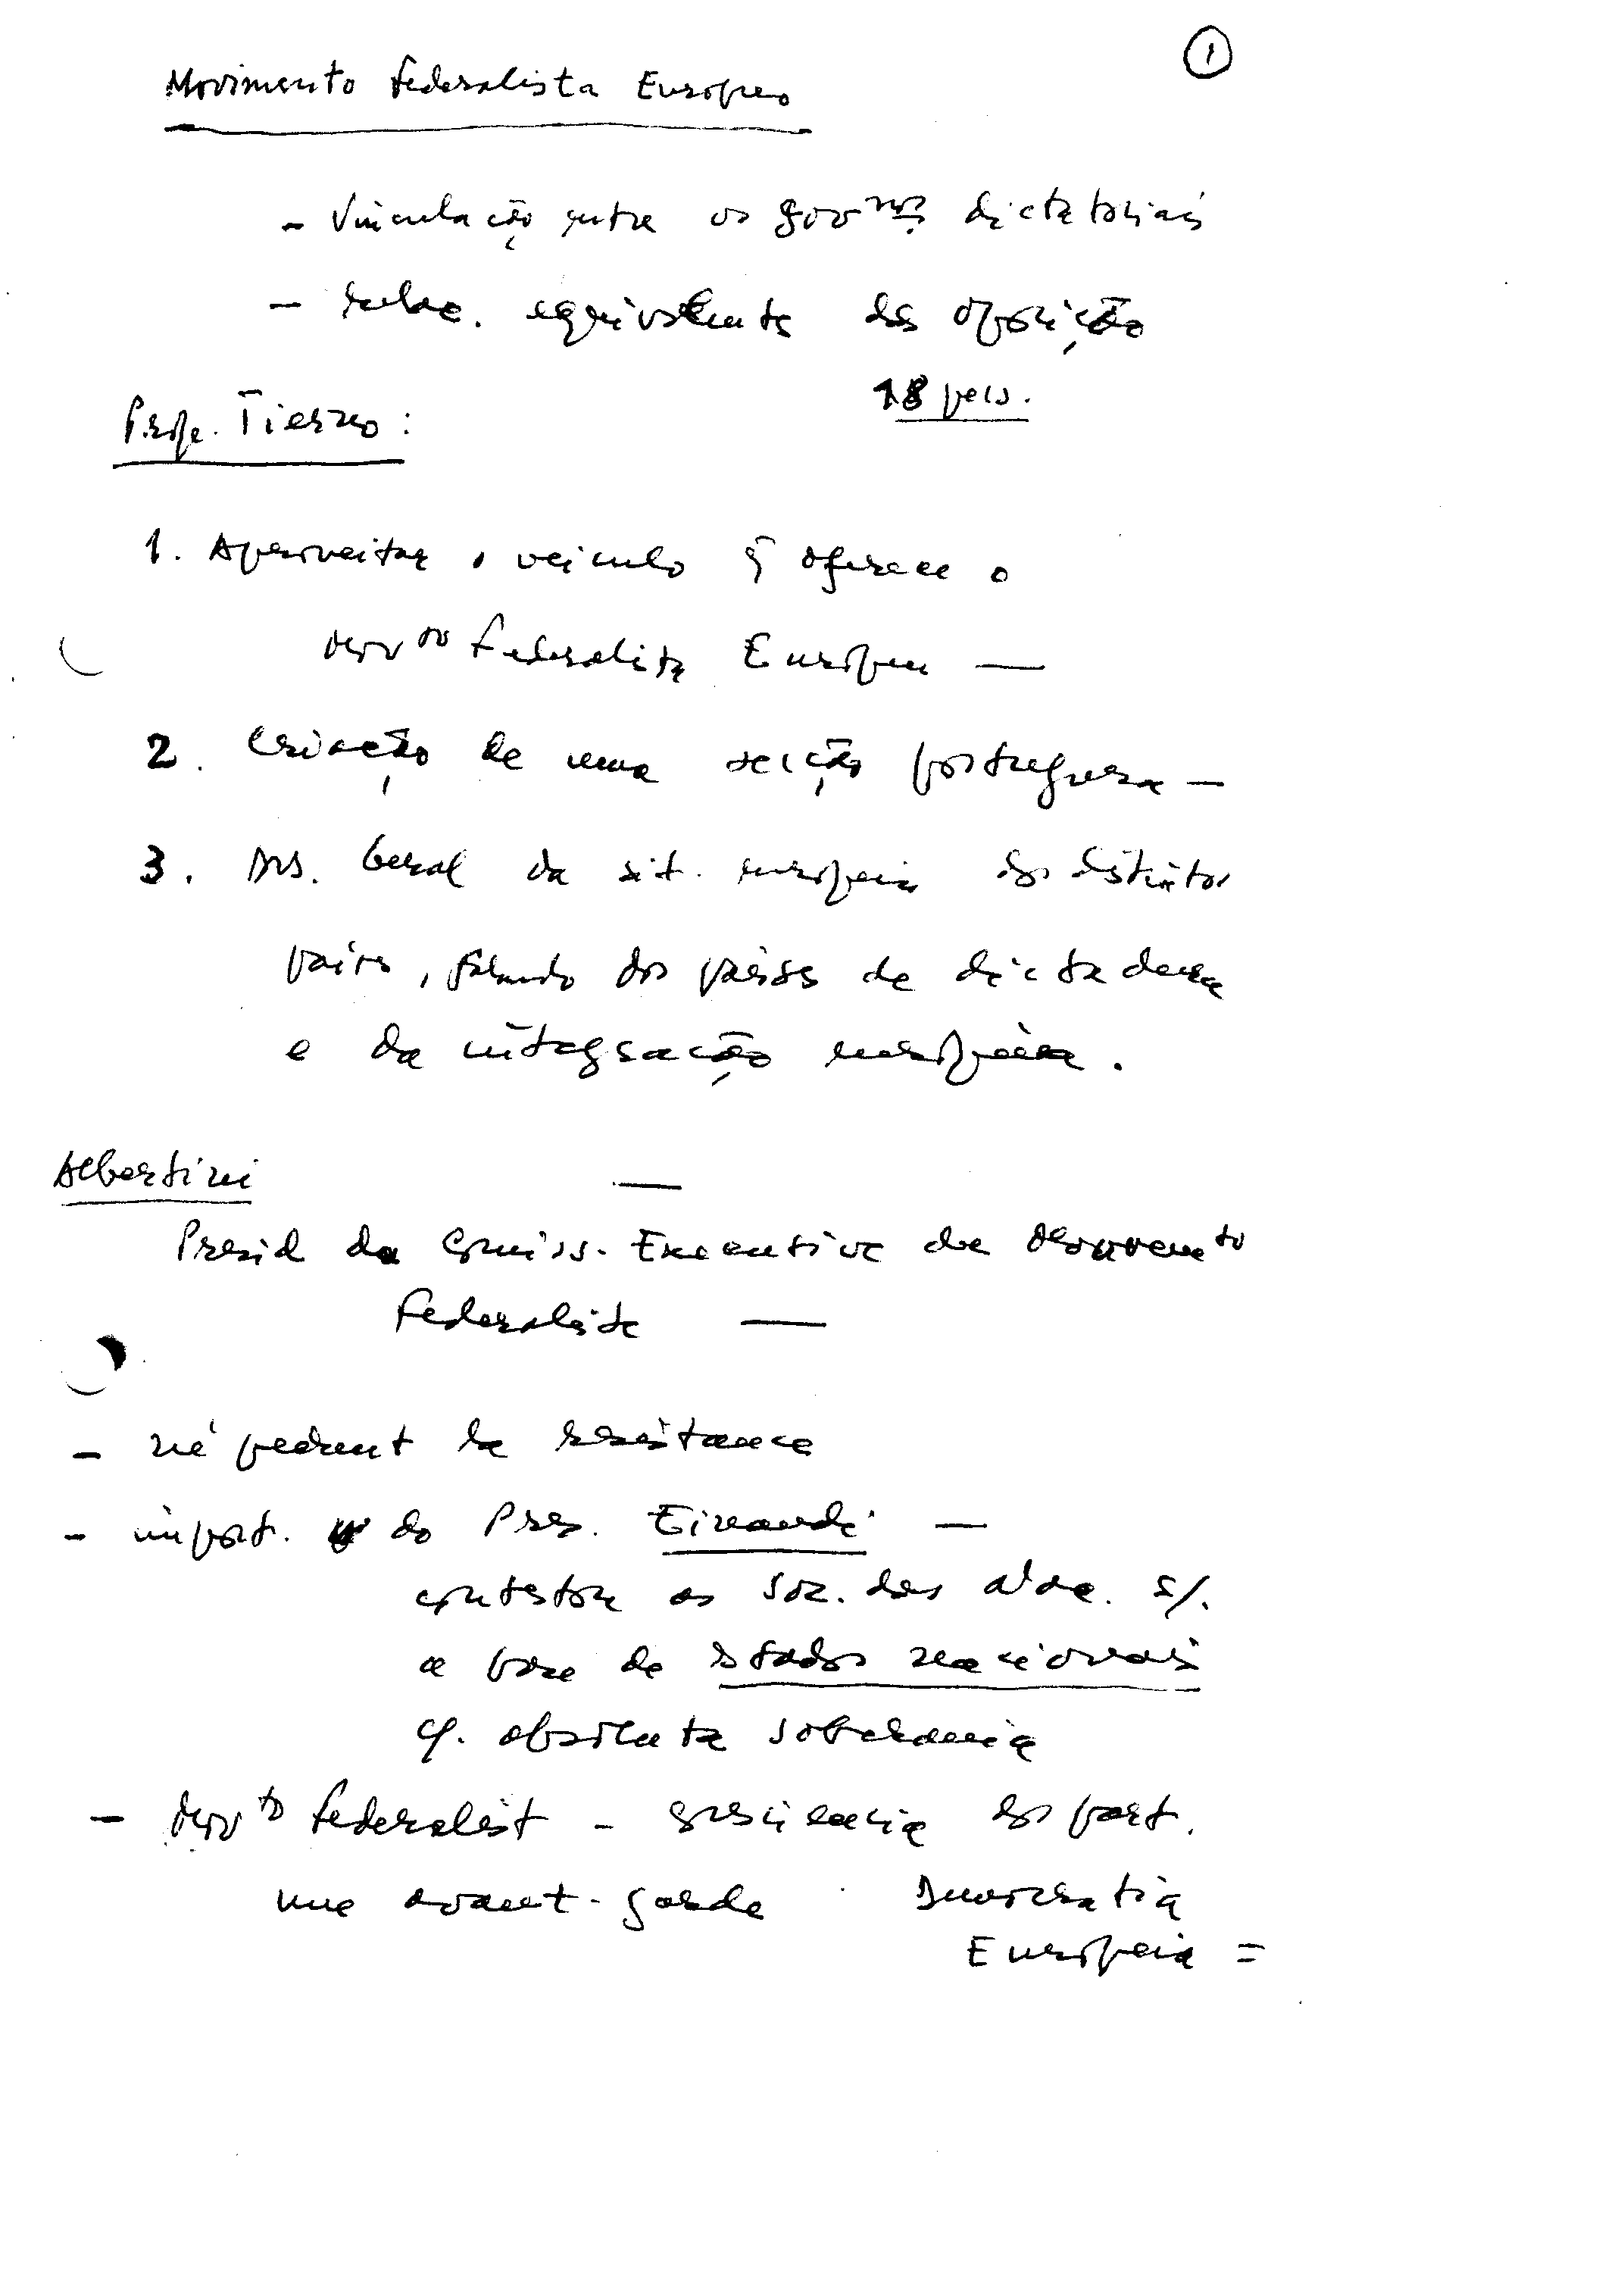 1
Movimento Federalista Europeu
- Vinculação entre os gov nos dictatoriais
- equivalente da oposição
18 pess.
Prof. Tierno:
1. Aproveitar o veiculo q̃ oferece o
Mov to Federalista Europeu —
2. Criação de uma secção portuguesa —
3. Geral da sit. europeia dos distintos
países, falando dos países de dictadura
e da integração europeia.
Albertini —
Presid da Comiss. Executiva do Movimento
Federalista —
- né pedant la résistance
- import. do Pres. Einaudi —
contestou as Soc. das s/.
a base de Estados nacionais
c/. absoluta soberania
- Mov to Federalist - dos part.
une avant-garde Democratia
Europeia =